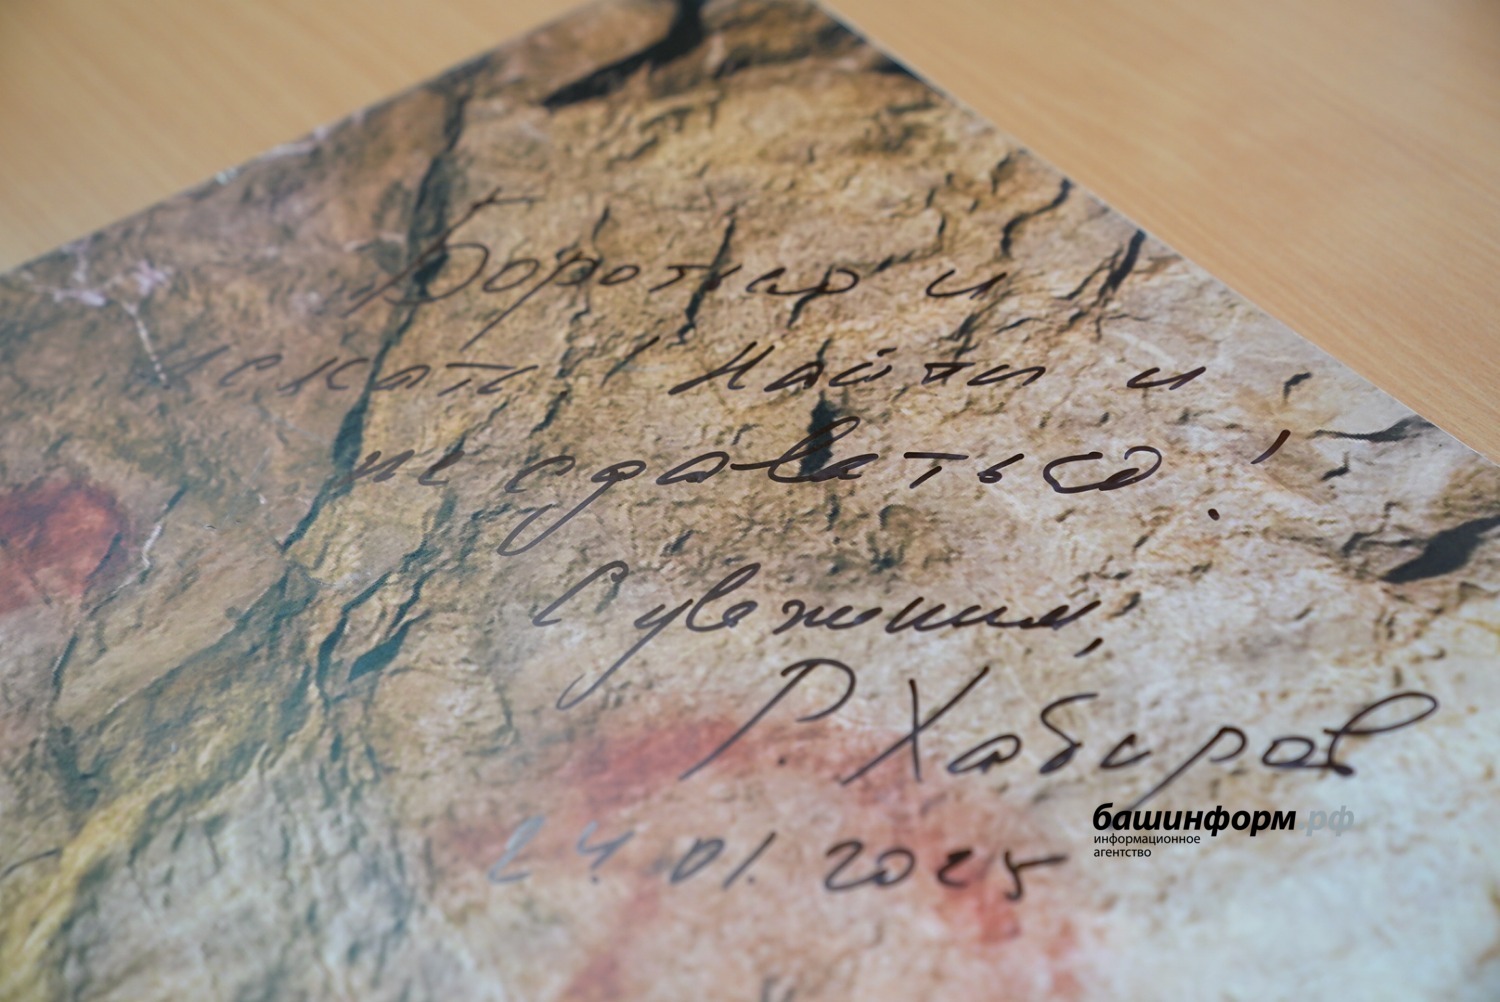 Бороться и
искать! Найти и
не сдаваться!
С уважением,
Р. Хабиров
24.01.2025
башинформ.рф
информационное
агентство